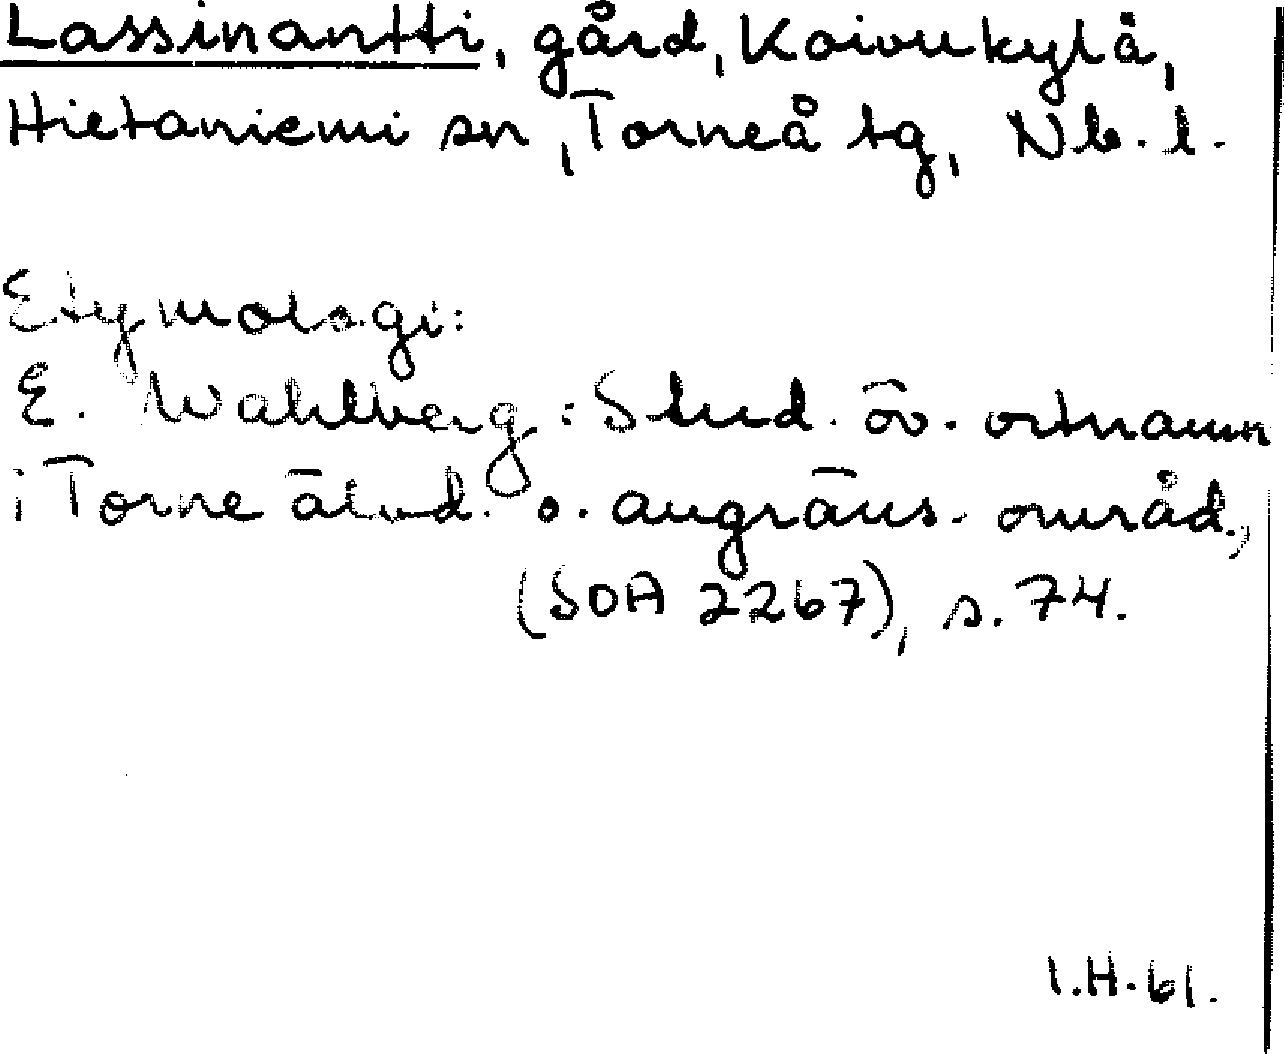 Lassinantti, gård, Koivukylä,
Hietaniemi sn, Torneå tg, Nb. l.
Etymologi:
E. Wahlberg: Stud. öv. ortnamn
i Torne älvd. o. angräns. områd.,
(SOA 2267), s. 74.
I.H. 61.